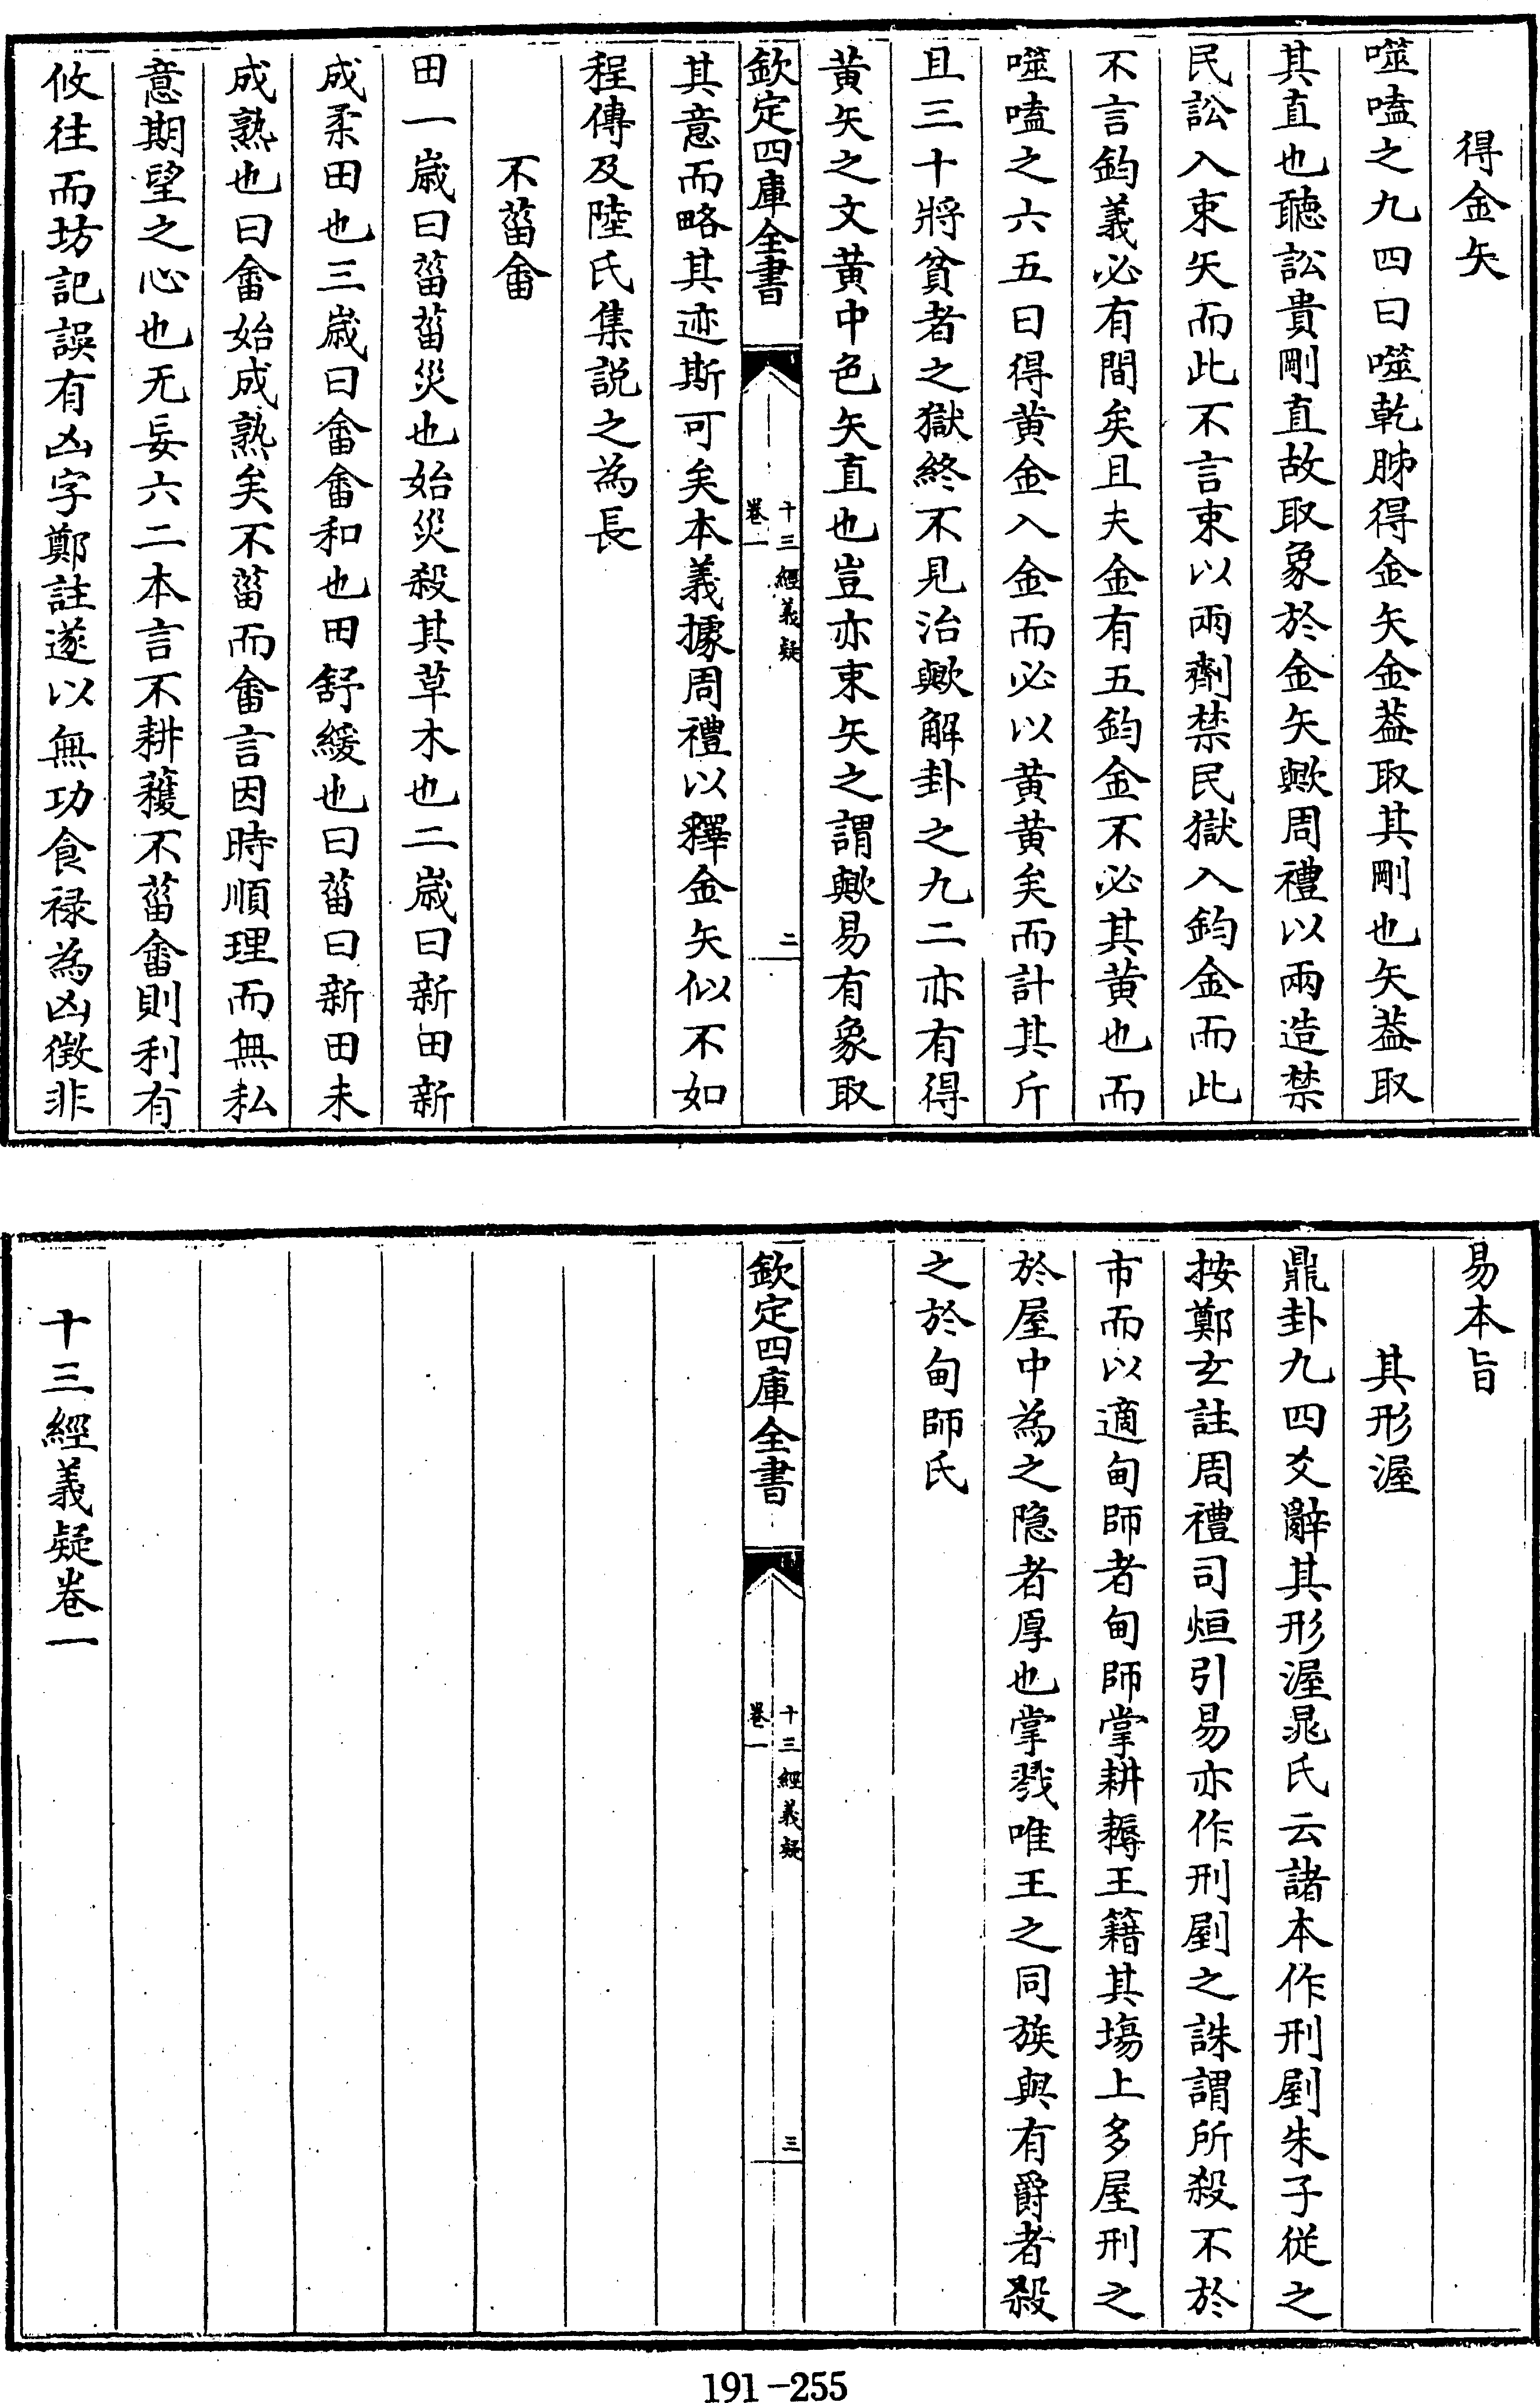 得金矢
噬嗑之九四曰噬乾胏得金矢金葢取其剛也矢葢取
其直也聽訟貴剛直故取象於金矢歟周禮以兩造禁
民訟入束矢而此不言束以兩劑禁民獄入鈞金而此
不言鈞義必有間矣且夫金有五鈞金不必其黄也而
噬嗑之六五曰得黄金入金而必以黄黄矣而計其斤
且三十將貧者之獄終不見治歟解卦之九二亦有得
黄矢之文黄中色矢直也豈亦束矢之謂歟易有象取
欽定四庫全書
十三經義疑
卷一
二
其意而略其迹斯可矣本義據周禮以釋金矢似不如
程傳及陸氏集説之為長
不菑畬
田一嵗曰菑菑災也始災殺其草木也二嵗曰新田新
成柔田也三嵗曰畬畬和也田舒緩也曰菑曰新田未
成熟也曰畬始成熟矣不菑而畬言因時順理而無私
意期望之心也无妄六二本言不耕穫不菑畬則利有
攸往而坊記誤有凶字鄭註遂以無功食禄為凶徴非
易本旨
其形渥
鼎卦九四爻辭其形渥晁氏云諸本作刑剭朱子從之
按鄭玄註周禮司烜引易亦作刑剭之誅謂所殺不於
市而以適甸師者甸師掌耕耨王籍其塲上多屋刑之
於屋中為之隐者厚也掌戮唯王之同族與有爵者殺
之於甸師氏
欽定四庫全書
十三經義疑
卷一
三
十三經義疑卷一
191-255